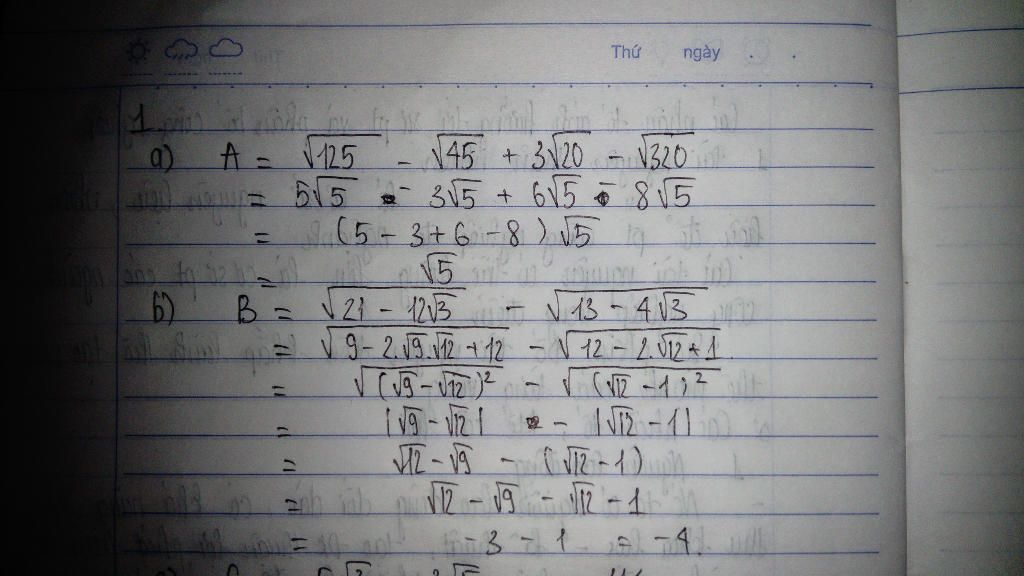 Thứ ngày . .
1
a) A = √125 - √45 + 3√20 - √320
= 5√5 - 3√5 + 6√5 - 8√5
= (5 - 3 + 6 - 8)√5
= √5
b) B = √(21 - 12√3) - √(13 - 4√3)
= √(9 - 2.√9.√12 + 12) - √(12 - 2.√12 + 1)
= √((√9 - √12)²) - √((√12 - 1)²)
= |√9 - √12| - |√12 - 1|
= √12 - √9 - (√12 - 1)
= √12 - √9 - √12 - 1
= -3 - 1 = -4.